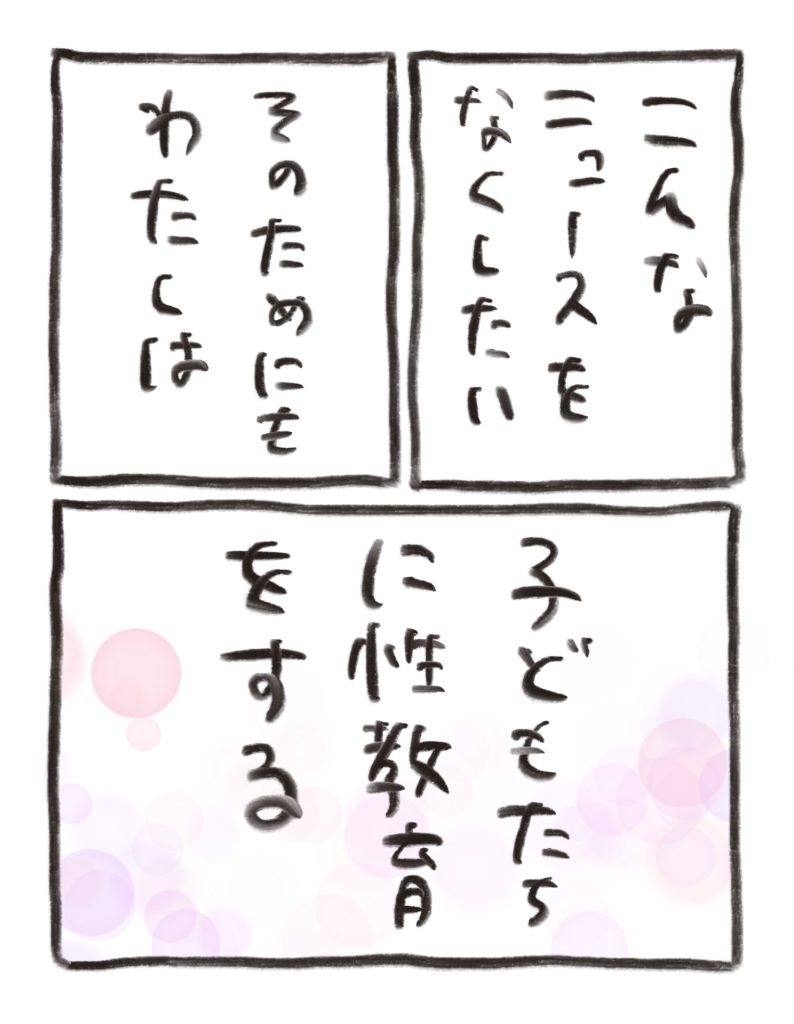 こんな
ニュースを
なくしたい
そのためにも
わたしは
子どもたち
に性教育
をする